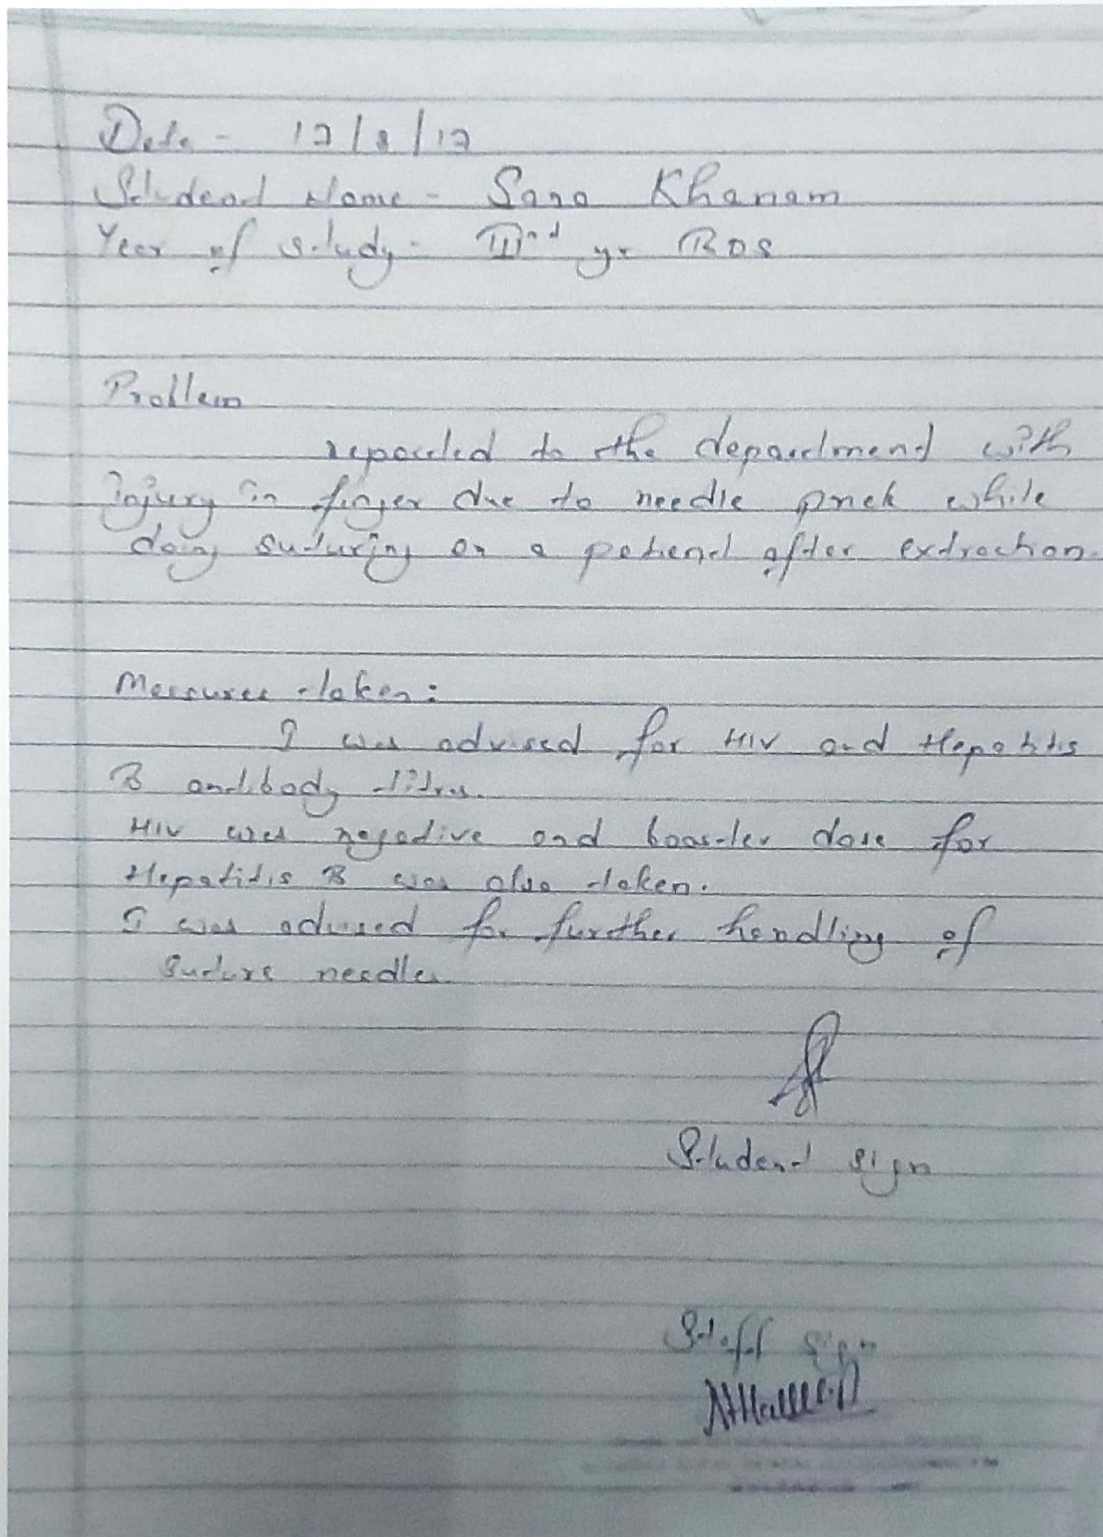 Date - 17/8/17
Student Name - Sana Khanam
Year of study - IInd yr BDS
Problem
reported to the department with
injury in finger due to needle prick while
doing suturing on a patient after extraction.
Measures taken:
I was advised for HIV and Hepatitis
B antibody titres.
HIV was negative and booster dose for
Hepatitis B was also taken.
I was advised for further handling of
suture needles.
Student sign
Staff sign